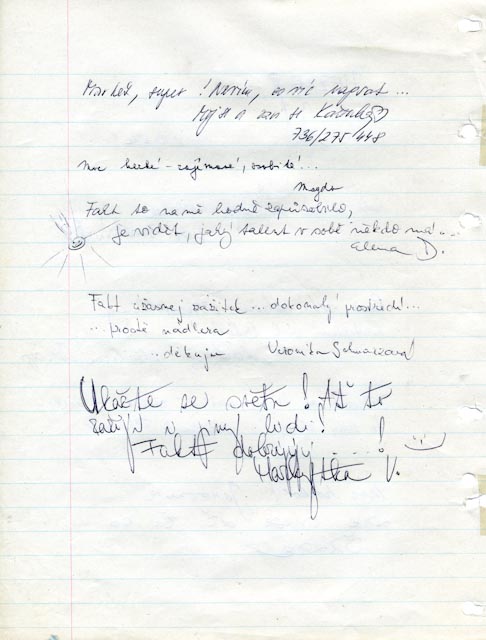 super! Nevím, co víc napsat...
Káčulka
736/275 448
Moc hezké - zajímavé, osobité!..
Magda
Fakt to na mě hodně zapůsobilo,
je vidět, jaký talent v sobě někdo má...
Alena D.
Fakt úžasnej zážitek ... dokonalý prostředí!...
...prostě nádhera
..děkuju Veronika Schwarzová
Ukažte se světu! Ať to
zažijí i jiný lidi!
Fakt dobrýýý ...!
Markytka V.